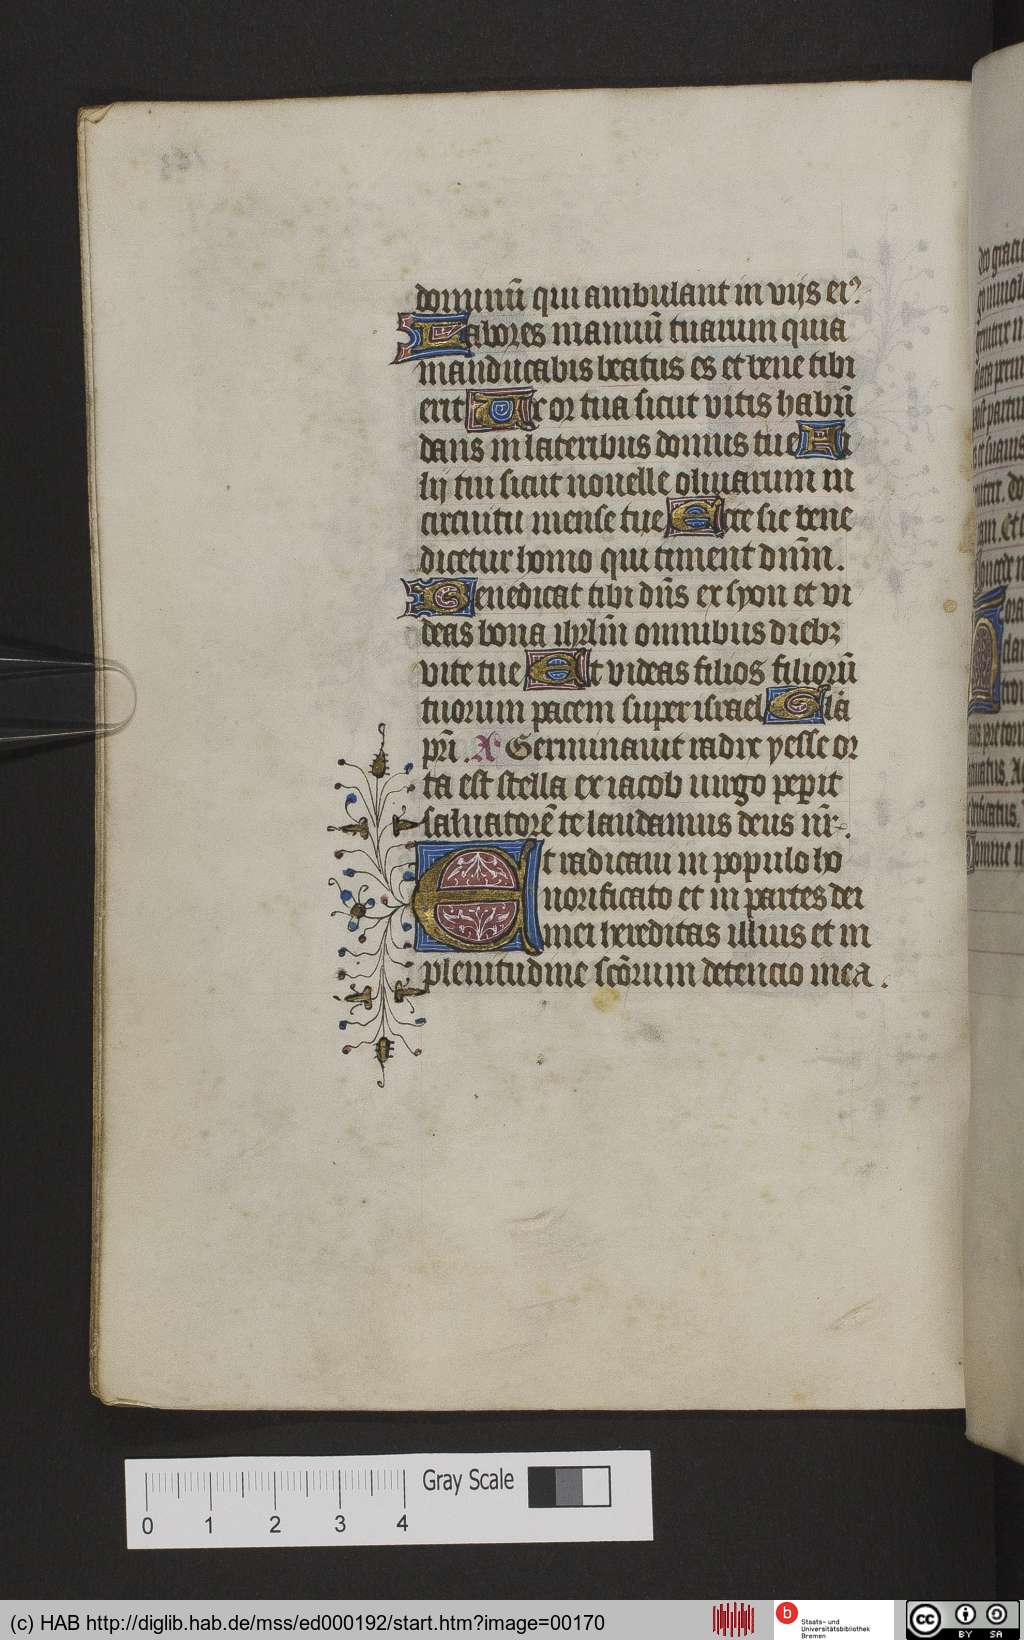 dominū qui ambulant in vijs eiꝰ.
Labores manuū tuarum quia
manducabis beatus es et bene tibi
erit Uxor tua sicut vitis habūn
dans in lateribus domus tue Fi
lij tui sicut nouelle oliuarum in
circuitu mense tue Ecce sic bene
dicetur homo qui timent dnm̄.
Benedicat tibi dn̄s ex syon et vi
deas bona ihrlm̄ omnibus diebꝫ
vite tue Et videas filios filiorū
tuorum pacem super israel Gl̄ia
pri̅. A᷒ Germinauit radix yesse or
ta est stella ex iacob uirgo peperit
saluatorē te laudamus deus nr̄.
Et radicaui in populo ho
norificato et in partes dei
mei hereditas illius et in
plenitudine scōrum detencio mea.
Gray Scale
0 1 2 3 4
(c) HAB http://diglib.hab.de/mss/ed000192/start.htm?image=00170
Staats- und
Universitätsbibliothek
Bremen
cc BY SA